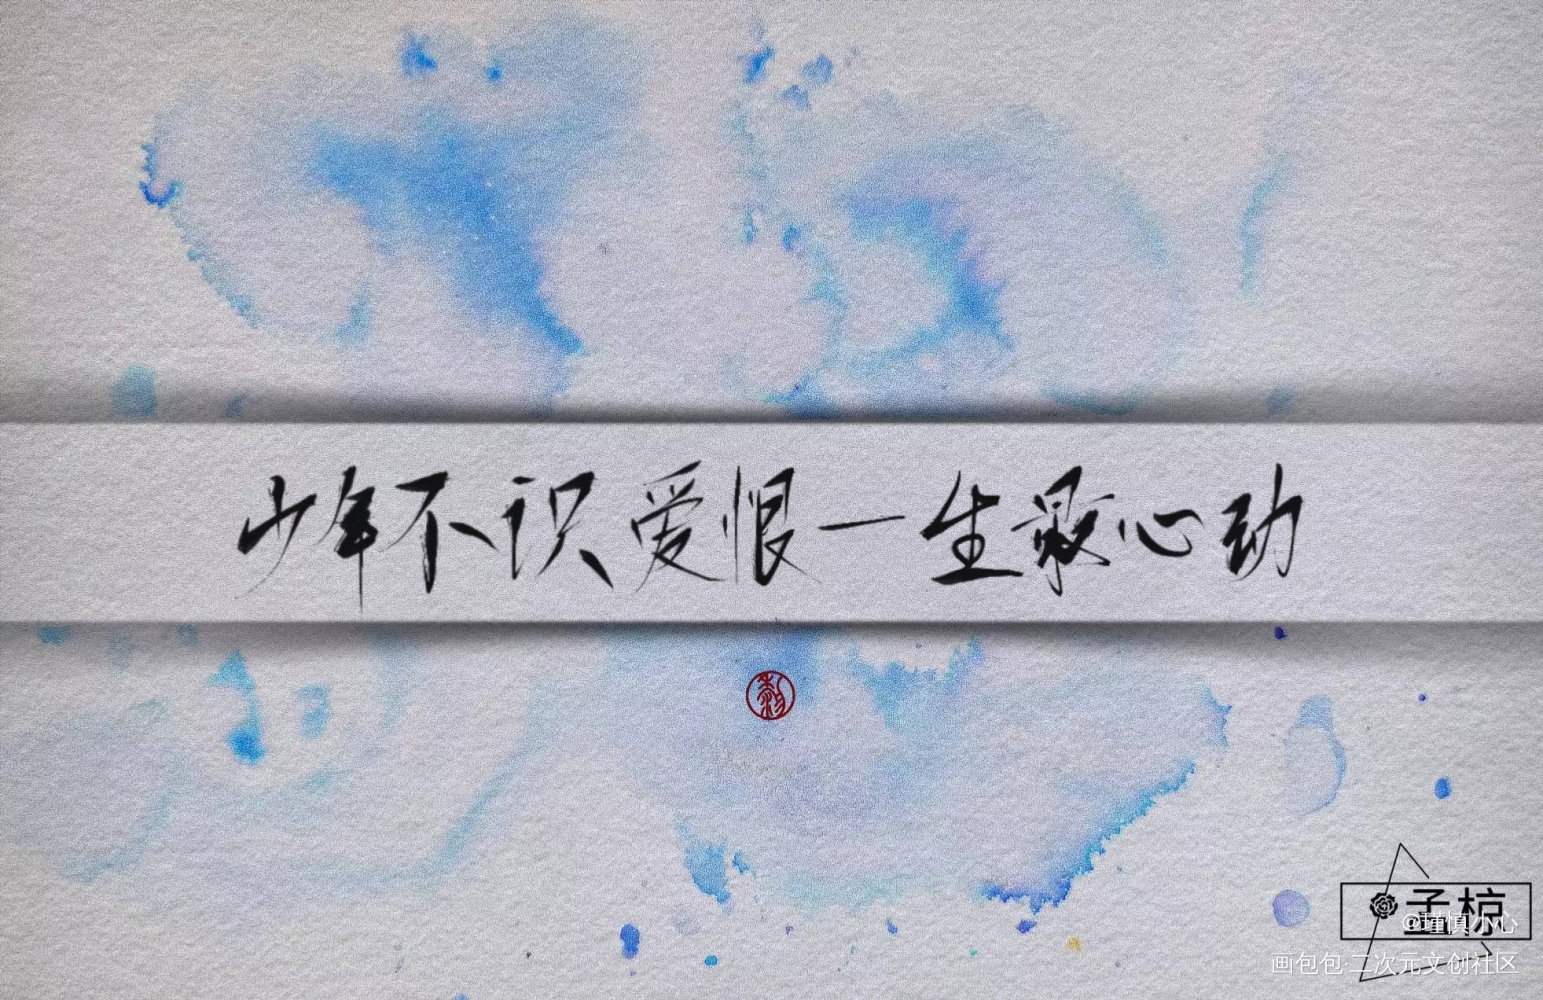 少年不识爱恨一生最心动
孟椋
@瑾慎小心
画包包·二次元文创社区